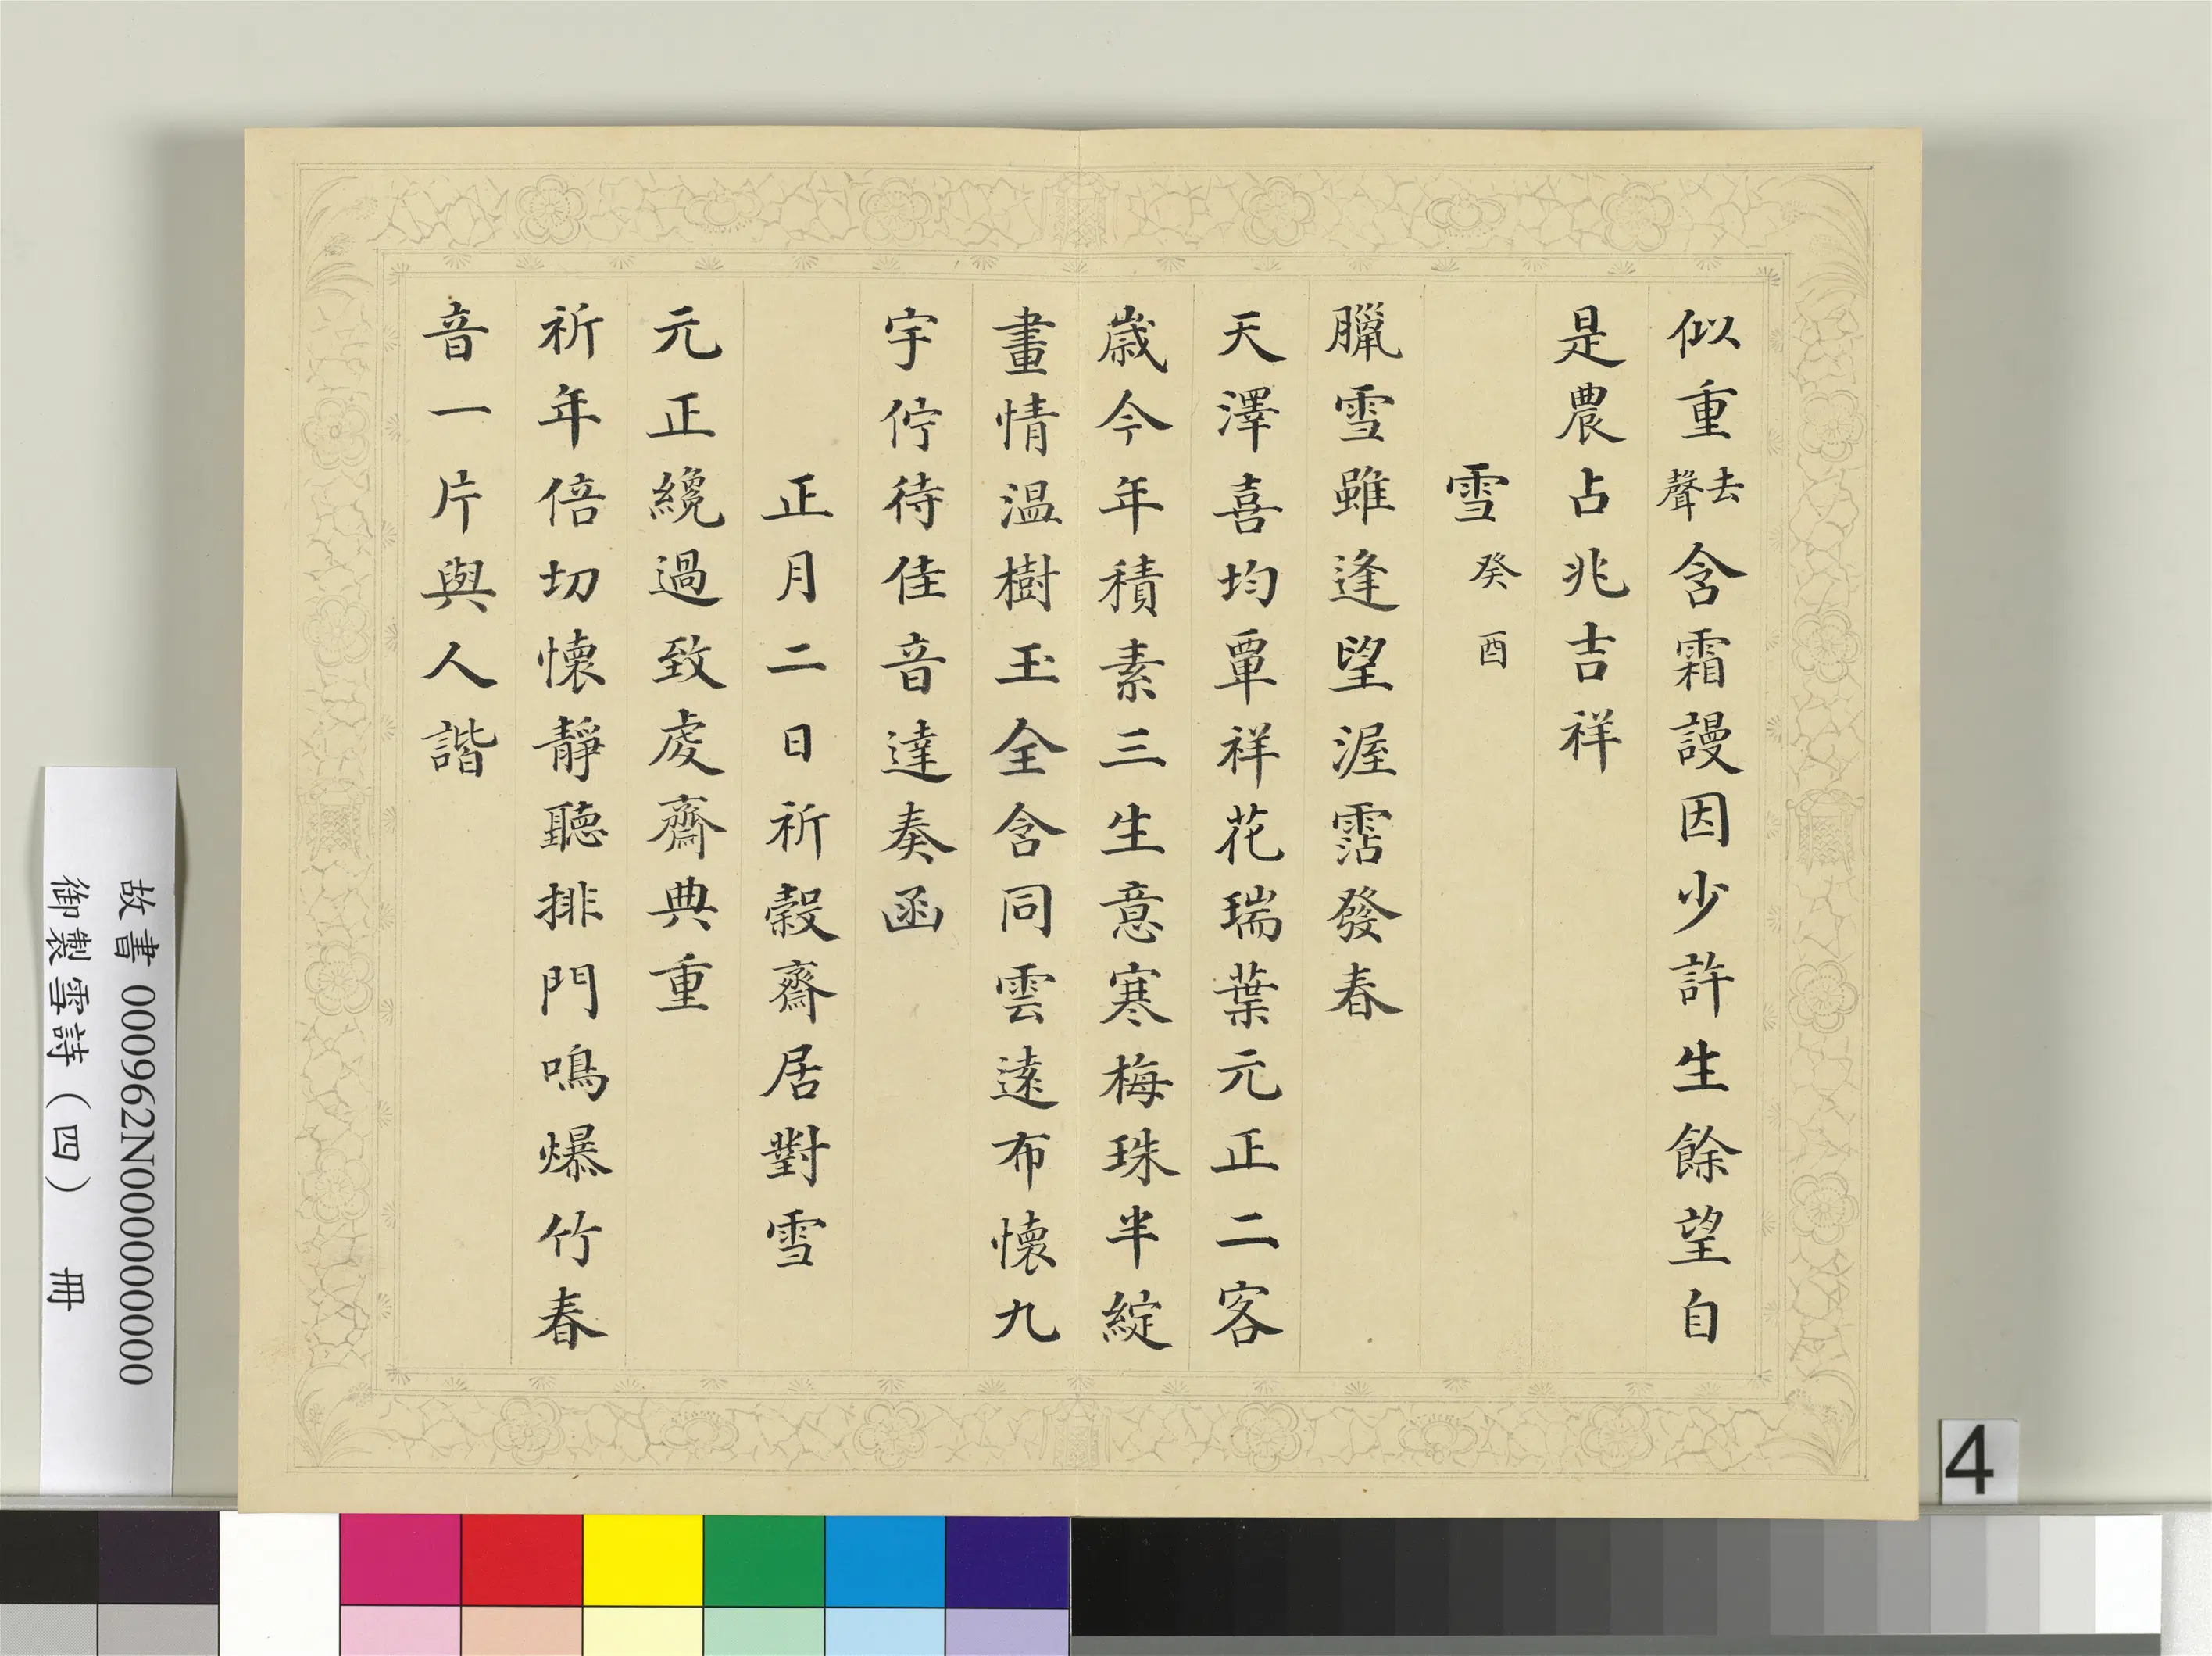 似重去聲含霜謾因少許生餘望自
是農占兆吉祥
雪癸酉
臘雪雖逢望渥霑發春
天澤喜均覃祥花瑞葉元正二客
歲今年積素三生意寒梅珠半綻
畫情温樹玉全含同雲遠布懷九
宇佇待佳音達奏函
正月二日祈穀齋居對雪
元正纔過致虔齋典重
祈年倍切懷靜聽排門鳴爆竹春
音一片與人諧
故書000962N000000000
御製雪詩（四） 冊
4